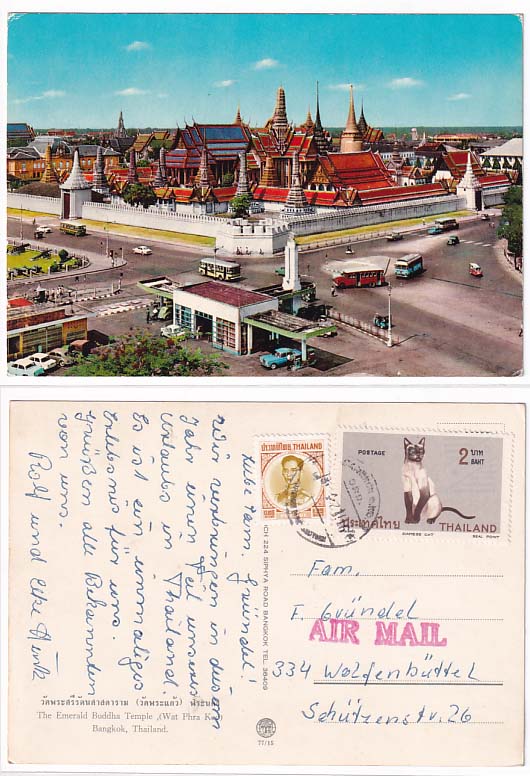 Liebe Fam. Gründel!
Wir verbringen in diesem
Jahr einen Teil unseres
Urlaubs in Thailand.
Es ist ein einmaliges
Erlebnis für uns.
Grüßen alle Bekannten
von uns.
Rolf und Elke
วัดพระศรีรัตนศาสดาราม (วัดพระแก้ว) พระนคร
The Emerald Buddha Temple (Wat Phra Keo)
Bangkok, Thailand.
ICH 224 SIPHYA ROAD BANGKOK TEL. 36409
77/15
ประเทศไทย THAILAND
POSTAGE
2 บาท
BAHT
ประเทศไทย THAILAND
SIAMESE CAT
SEAL POINT
Fam.
E. Gründel
AIR MAIL
334 Wolfenbüttel
Schützenstr. 26